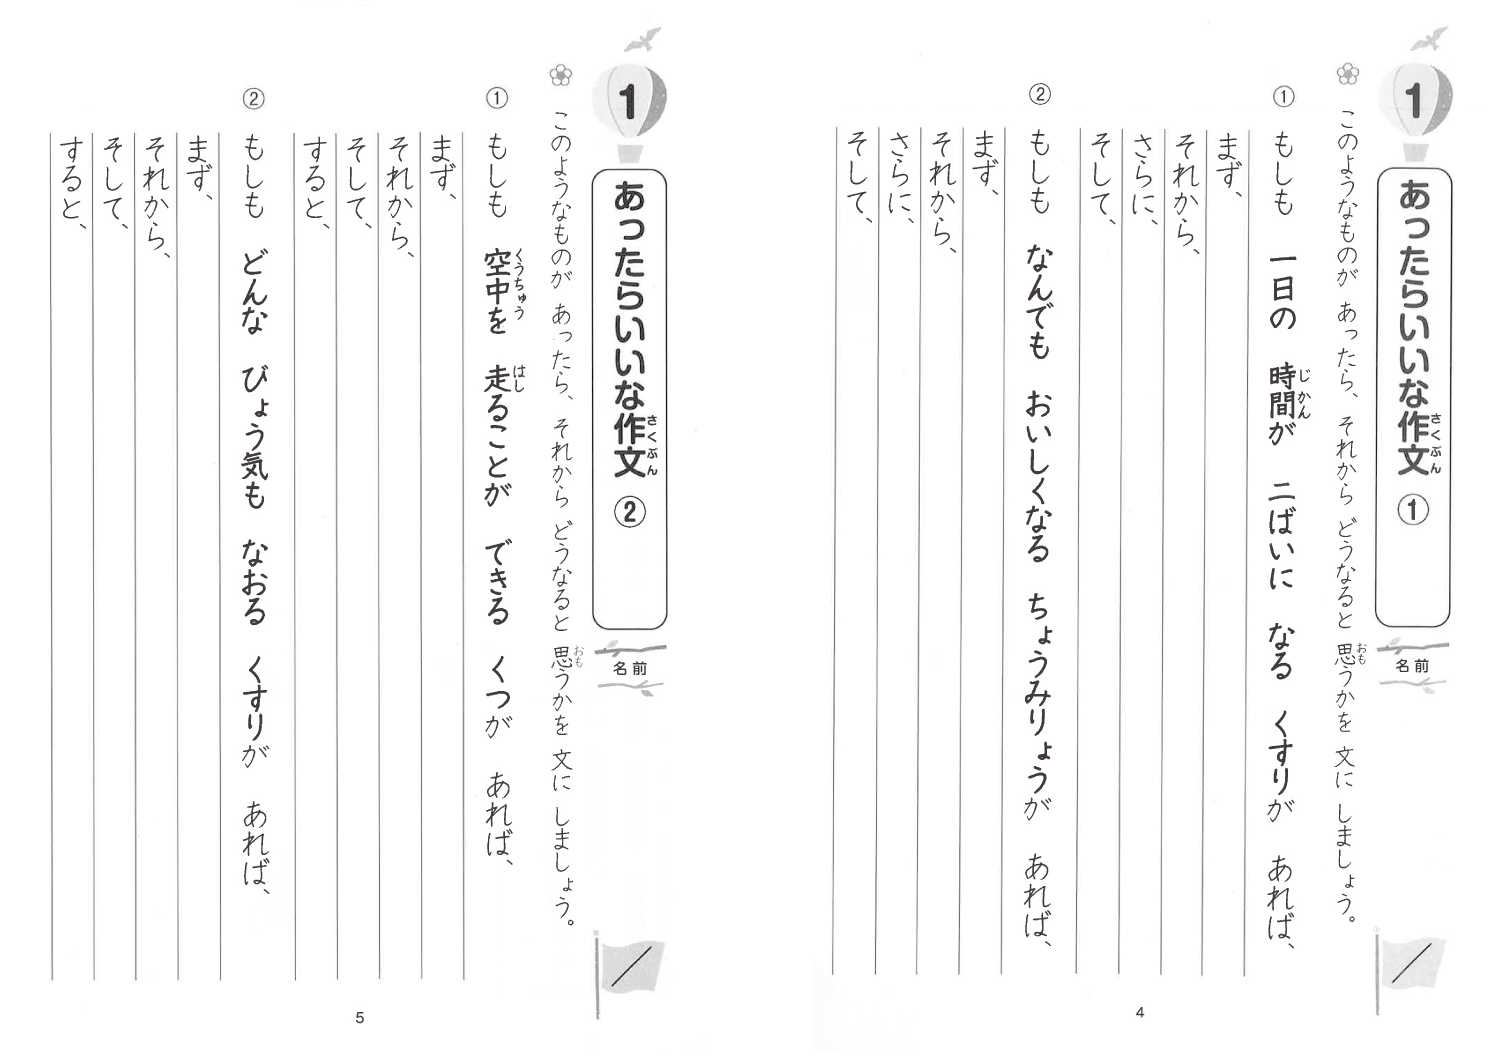 1
あったらいいな作文 ①
さくぶん
名前
このようなものが あったら、それから どうなると 思うかを 文に しましょう。
おも
① もしも 一日の 時間が 二ばいに なる くすりが あれば、
じかん
まず、
それから、
さらに、
そして、
② もしも なんでも おいしくなる ちょうみりょうが あれば、
まず、
それから、
さらに、
そして、
4
1
あったらいいな作文 ②
さくぶん
名前
このようなものが あったら、それから どうなると 思うかを 文に しましょう。
おも
① もしも 空中を 走ることが できる くつが あれば、
くうちゅう はし
まず、
それから、
そして、
すると、
② もしも どんな びょう気も なおる くすりが あれば、
まず、
それから、
そして、
すると、
5